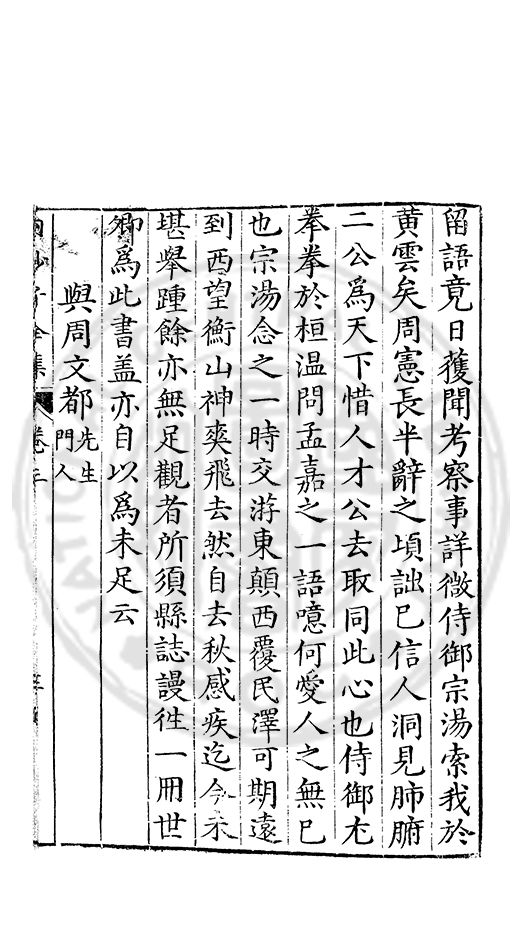 留語竟日獲聞考察事詳微侍御宗湯索我於
黃雲矣周憲長半辭之頃詘巳信人洞見肺腑
二公爲天下惜人才公去取同此心也侍御尢
拳拳於桓温問孟嘉之一語噫何愛人之無巳
也宗湯念之一時交游東顛西覆民澤可期遠
到西望衡山神爽飛去然自去秋感疾迄今未
堪舉踵餘亦無足觀者所須縣誌謾徃一冊世
卿爲此書盖亦自以爲未足云
與周文都先生門人
子全集
卷三